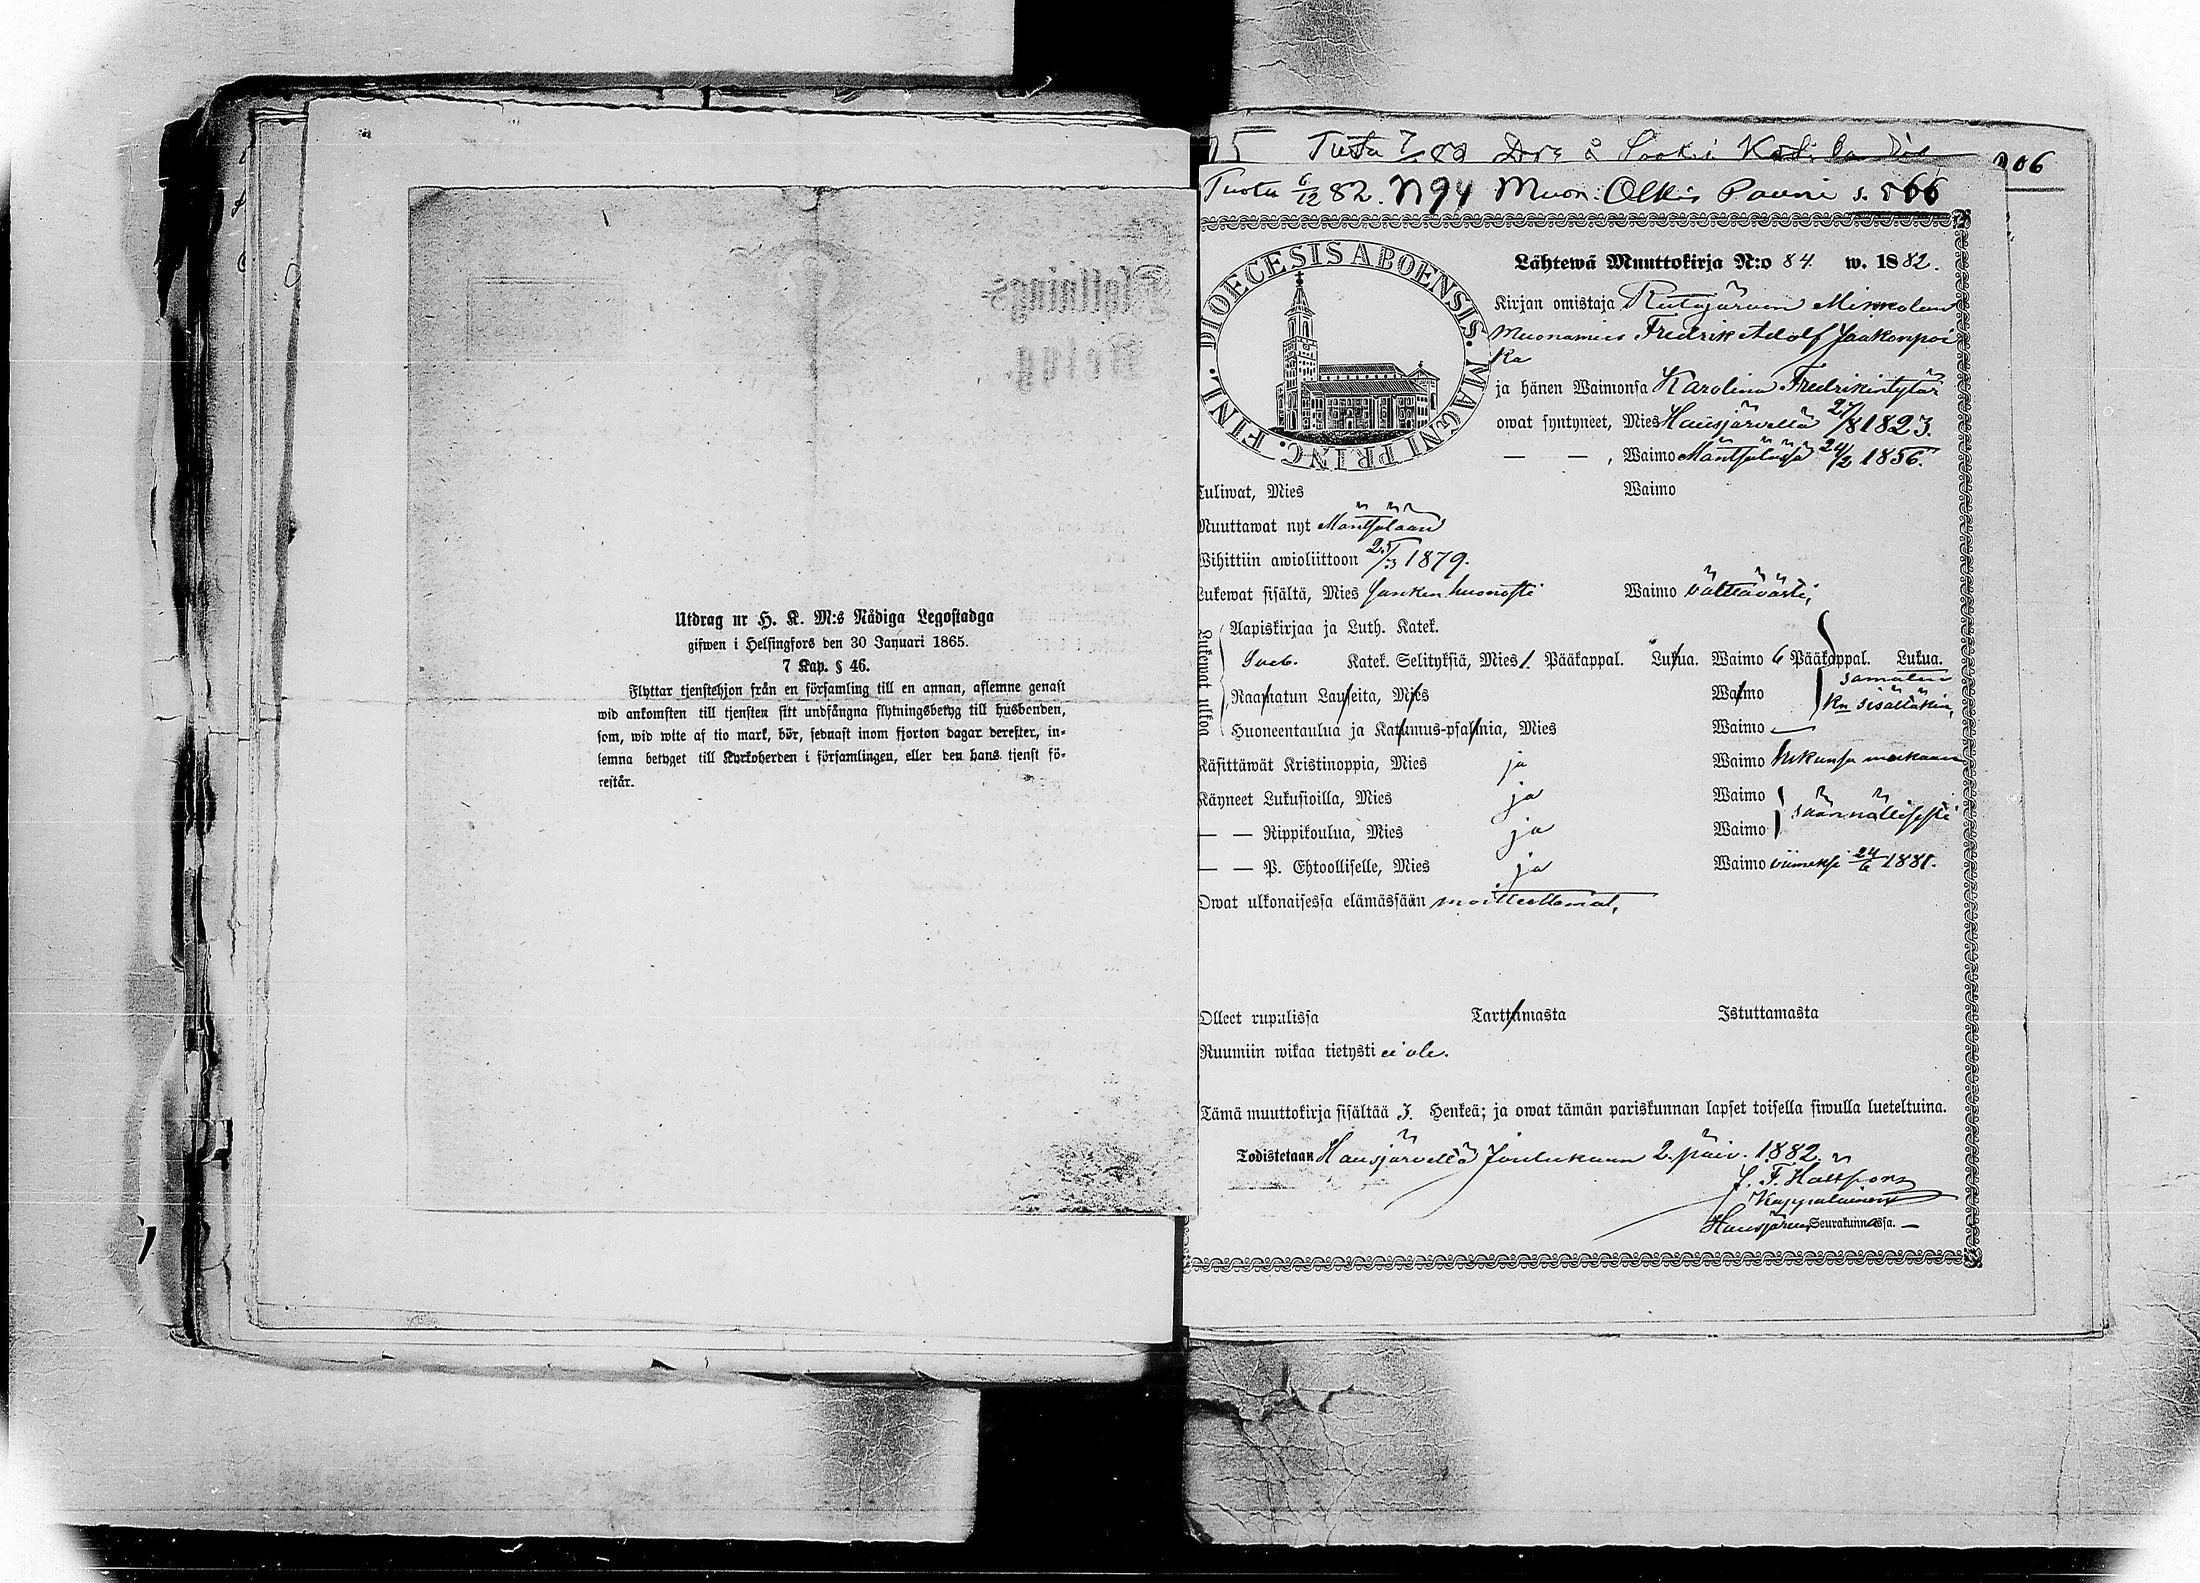 Utdrag ur H. K. M:s Nådiga Legostadga
gifwen i Helsingfors den 30 Januari 1865.
7 Kap. § 46.
Flyttar tjenstehjon från en församling till en annan, aflemne genast
wid ankomsten till tjensten sitt undfångna flytningsbetyg till husbonden,
som, wid wite af tio mark, bör, sednast inom fjorton dagar derefter, in-
lemna betyget till Kyrkoherden i församlingen, eller den hans tjenst fö-
restår.
Flyttnings-
Betyg.
Tuotu 7/
206
Tuotu 6/12 82. N 94 Muon: Olkis Pauni s. 566
DIOECESIS ABOENSIS. MAGNI PRINC. FINL.
Lähtewä Muuttokirja N:o 84. w. 1882.
Kirjan omistaja Rutajärven Mikkolan
Muonamies Fredrik Adolf Jaakonpoi
ka
ja hänen Waimonsa Karolina Fredrikintytär
owat syntyneet, Mies Hausjärvellä 27/8 1823.
— — , Waimo Mäntsälässä 24/2 1856.
Tuliwat, Mies Waimo
Muuttawat nyt Mäntsälään
Wihittiin awioliittoon 25/3 1879.
Lukewat sisältä, Mies huonosti Waimo välttävästi,
Lukewat ulkoa
Aapiskirjaa ja Luth. Katek.
Sveb. Katek. Selityksiä, Mies 1. Pääkappal. Lukua. Waimo 6 Pääkappal. Lukua.
Raamatun Lauseita, Mies Waimo
samoin
kn sisältäkin,
Huoneentaulua ja Katumus-psalmia, Mies Waimo —
Käsittäwät Kristinoppia, Mies ja Waimo mukaan
Käyneet Lukusioilla, Mies ja Waimo
säännöllisesti
— — Rippikoulua, Mies ja Waimo
— — P. Ehtoolliselle, Mies ja Waimo viimeksi 24/6 1881.
Owat ulkonaisessa elämässään moitteettomat,
Olleet rupulissa Tarttumasta Istuttamasta
Ruumiin wikaa tietysti ei ole.
Tämä muuttokirja sisältää 3. Henkeä; ja owat tämän pariskunnan lapset toisella siwulla lueteltuina.
Todistetaan Hausjärvellä Joulukuun 2. päiv. 1882.
J. F.
Kappalainen
Hausjärven Seurakunnassa. —